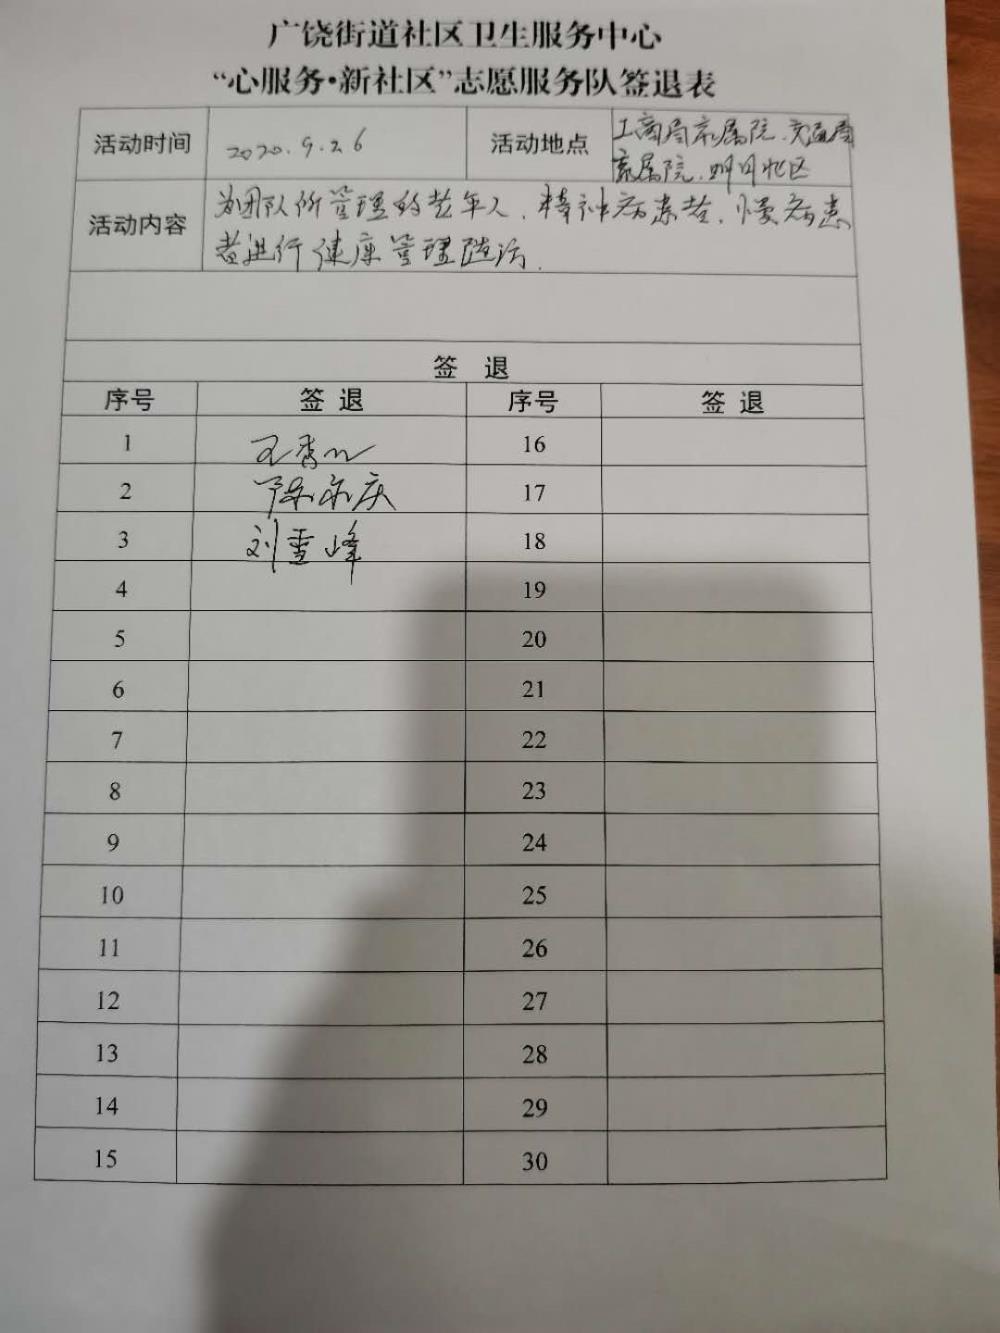 广饶街道社区卫生服务中心
“心服务·新社区”志愿服务队签退表
活动时间 2020.9.26 活动地点 工商局家属院、交通局
家属院、明月北区
活动内容 为团队所管理的老年人、精神病患者、慢病患
者进行健康管理随访.
签 退
序号 签 退 序号 签 退
1 16
2 陈永庆 17
3 刘雪峰 18
4 19
5 20
6 21
7 22
8 23
9 24
10 25
11 26
12 27
13 28
14 29
15 30